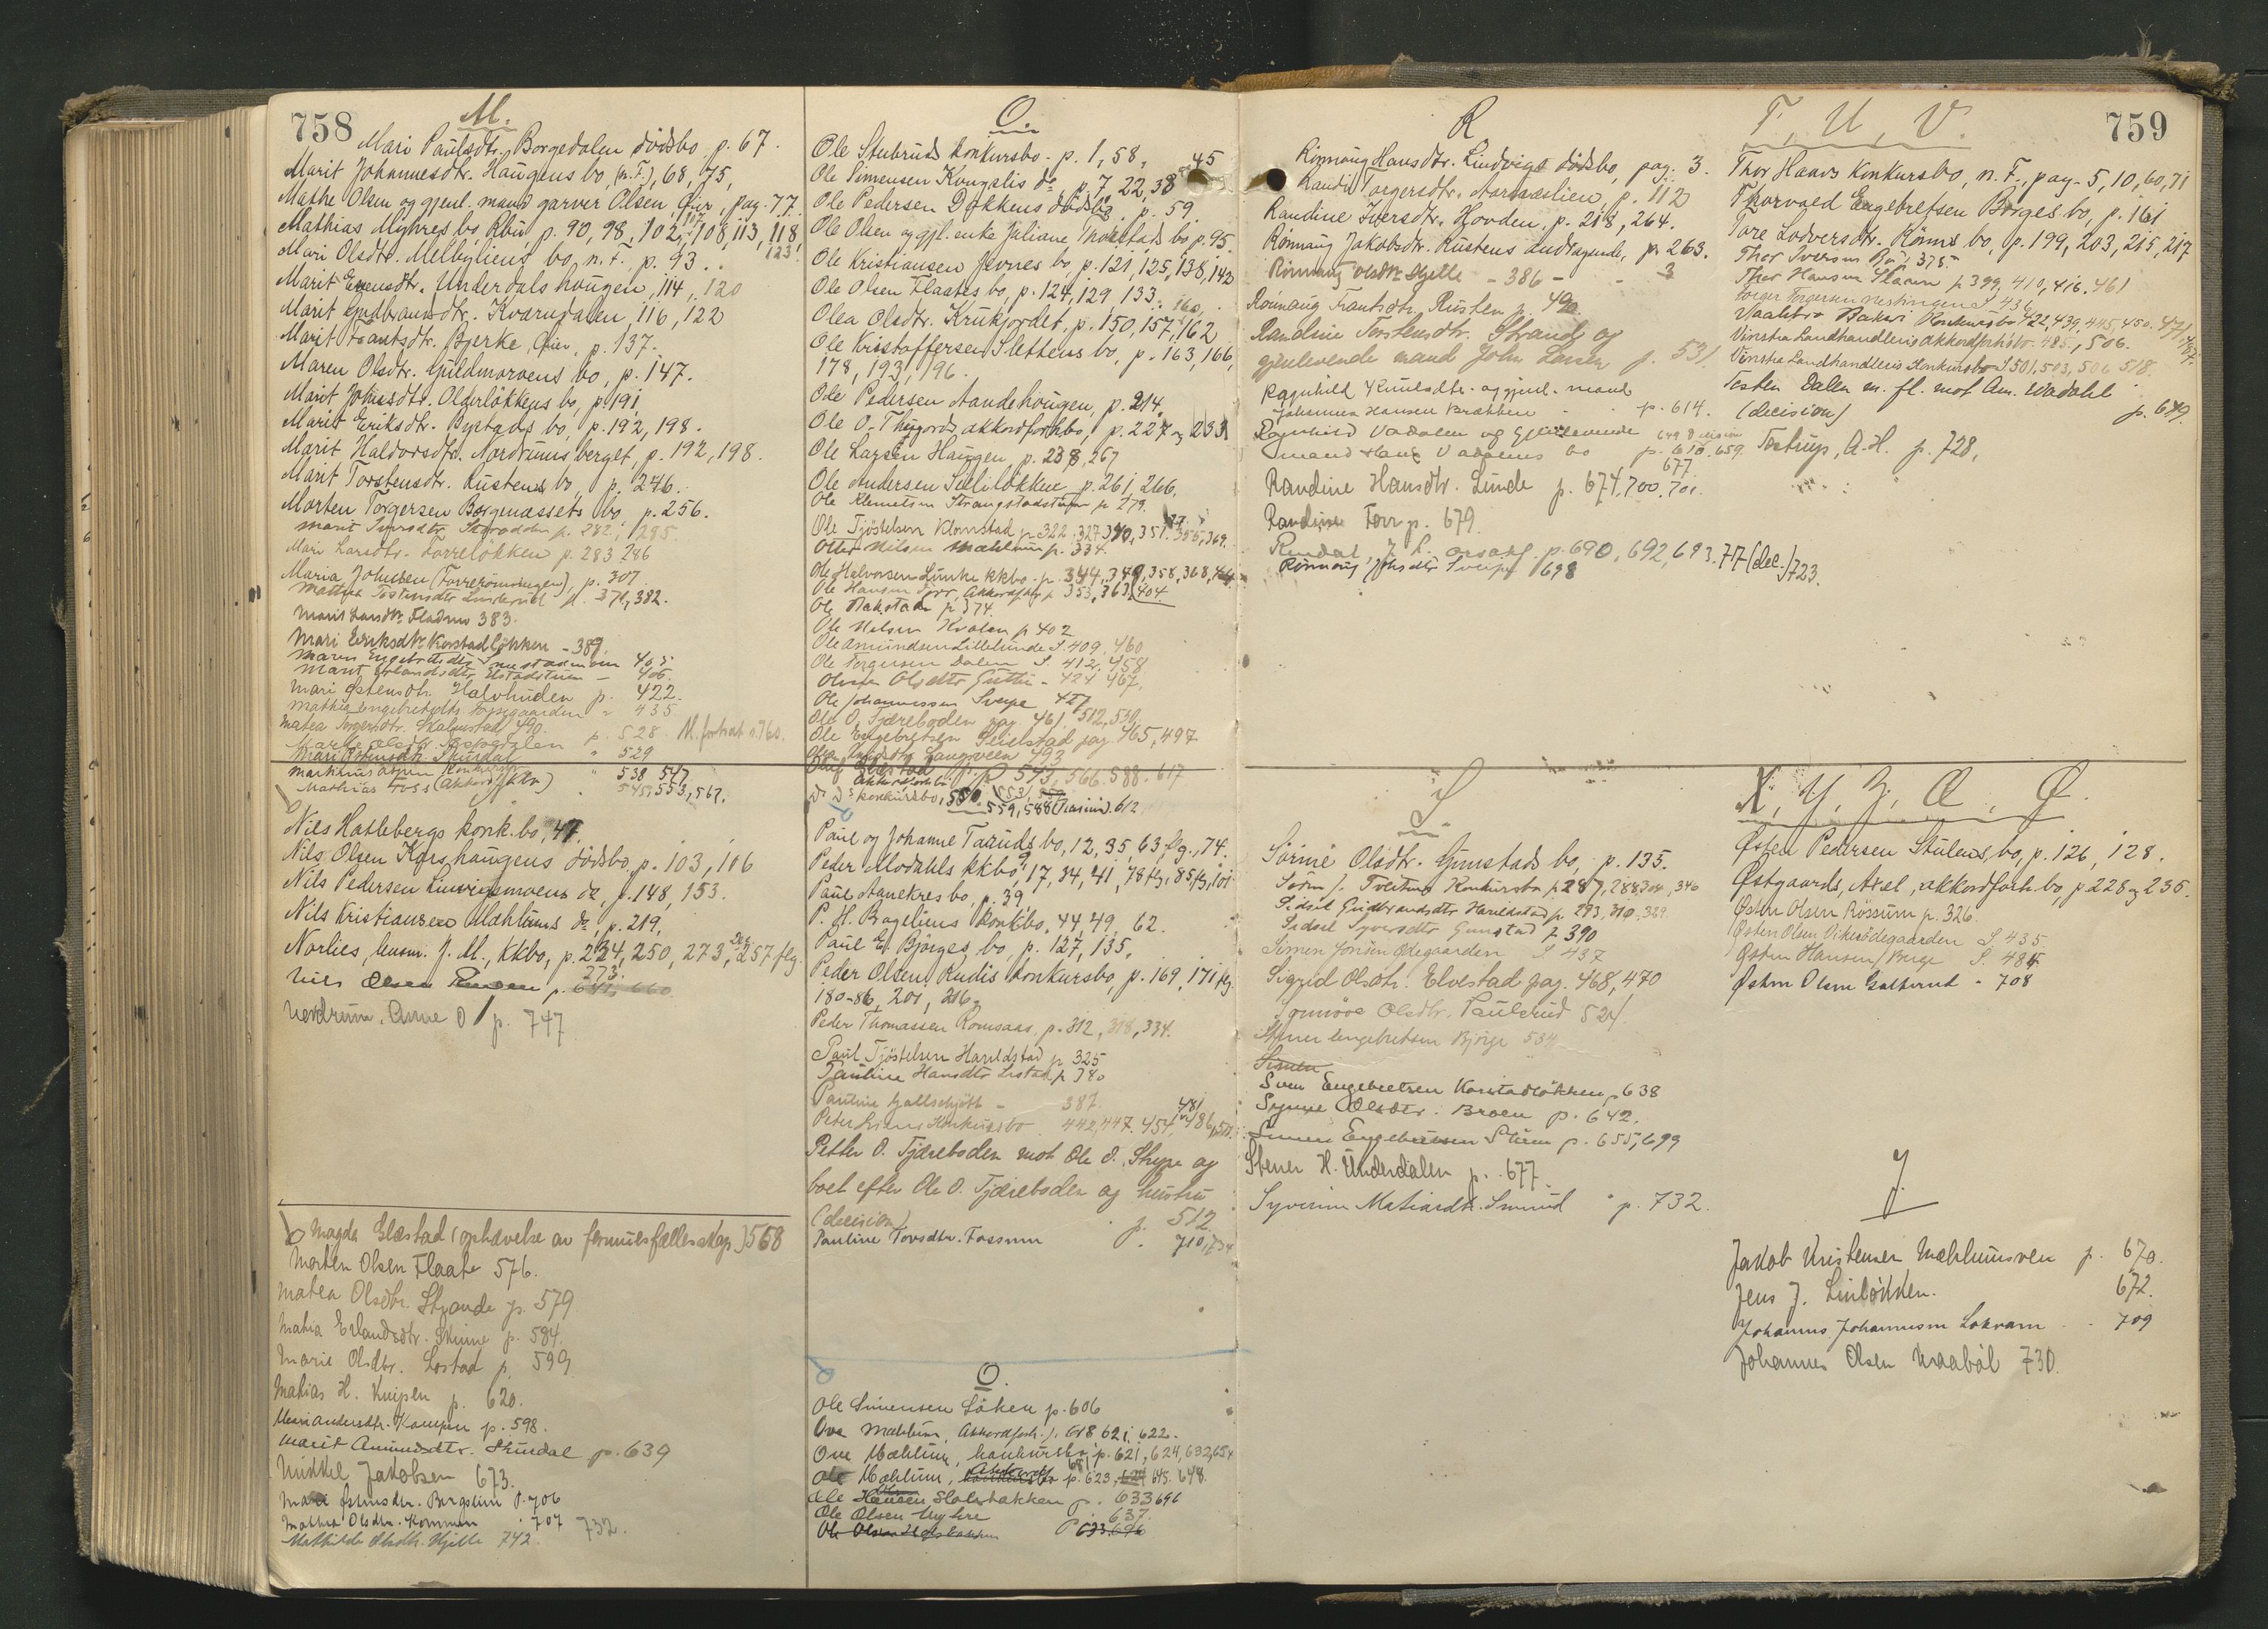 758
M.
Mari Paulsdtr. Borgedalen dödsbo p. 67.
Marit Johannesdtr. Haugens bo, (n. F.), 68, 75,
Mathe Olsen og gjenl. mand garver Olsen, Öier, pag. 77.
Mathias Myhres bo Rbu, p. 90, 98, 102, 107, 108, 113, 118,
123.
Mari Olsdtr. Melbyliens bo, n. F. p. 93.
Marit Evensdtr. Underdalshaugen, 114, 120
Marit Gudbrandsdtr. Kvarndalen, 116, 122
Marit Frantsdtr. Bjerke, Öier, p. 137.
Maren Olsdtr. Guldmorvens bo, p. 147.
Marit Johnsdtr. Olderlökkens bo, p. 191
Marit Eriksdtr. Bystads bo, p. 192, 198.
Marit Haldorsdtr. Nordrumsberget, p. 192, 198.
Marit Torstensdtr. Rustens bo, p. 246.
Morten Torgersen Borgenæssets bo p. 256.
Marit Iversdtr. p. 282, 285.
Mari Larsdtr. Forrelökken p. 283 286
Maria Johnsen p. 307
Mathea Tostensdtr Linderud p. 371, 382.
Marit Larsdtr. Fladmo 383.
Mari Eriksdtr. Korstadlökken - 389.
Maren Engebretsdtr 405
Marit Erlandsdtr. Elstadstuen - 406.
Mari Östensdtr. Halvhuden p. 422.
Mathea Engebretsdtr. Forsegaarden " 435
Matea Torgersdtr. Skalmstad 490.
Olsdtr. p. 528. M. fortsat s. 760.
Mari Östensdtr. Skurdal " 529
Martinius Aspen Konkursbo " 538 547
Mathias Foss (Akkord) (Kbo) " 545, 553, 567.
Nils Hatlebergs konk. bo, 47.
Nils Olsen Korshaugens dödsbo p. 103, 106
Nils Pedersen Linvigsmoens do, p. 148, 153.
Nils Kristiansen Mæhlums do, p. 219,
Norlies, lensm. J. M., kkbo, p. 234, 250, 273, 257 flg.
273.
Nils Olsen p. 641, 660
Nordrum, Anne O p. 747
Magda Elstad (ophævelse av formuesfællesskap) 568
Morten Olsen Flaate 576.
Matea Olsdtr. Strande p. 579
Matea Erlandsdtr. Skinne p. 584.
Marie Olsdtr. Lostad p. 599
Matias H. Knipen p. 620.
Mari Andersdtr. Kampen p. 598.
Marit Amundsdtr. Skurdal p. 639
Mikkel Jakobsen 673.
Mari Östensdtr. Borgslien p. 706
Mathea Olsdtr. Kommen . 707 732.
Mathilde Olsdtr. Hjelle 742.
O.
Ole Stubruds konkursbo p. 1, 58,
Ole Simensen Kongslis do p. 7, 22, 38 45
Ole Pedersen Dokkens dödsbo, p. 59.
Ole Olsen og gjl. enke Juliane, Norstads bo p. 95.
Ole Kristiansen Jevnes bo, p. 121, 125, 138, 142
Ole Olsen Flaates bo, p. 124, 129 133. 160,
Olea Olsdtr. Krukjordet, p. 150, 157, 162
Ole Kristoffersen Slettens bo, p. 163, 166,
178, 193, 196.
Ole Pedersen Aandehougen, p. 214.
Ole O. akkordforhbo, p. 227 og 233
Ole Larsen Haugen p. 238, 267
Ole Andersen Sulilökken p. 261, 266.
Ole Klemetsen Strangstadstuen p 279.
Ole Tjöstelsen Klomstad p. 322, 327 340, 351. 355, 369.
Otter Nilsen Mæhlum p. 334.
Ole Halvorsen Lunke kkbo. p. 344, 349, 358, 368,
Ole Hansen Akkordforh p 353, 363, 404.
Ole Bakstad p 374.
Ole Nilsen Kvalen p 402
Ole Amundsen Lillelunde S. 409. 460
Ole Torgersen Dalen S. 412, 458
Oline Olsdtr - 424 467.
Ole Johannessen Sveipe 427
Ole O. Tjæreboden pag. 461 512, 530
Ole Engebretsen Seielstad pag. 465, 497
Olea Langveen 493
Oluf Elstad p 543, 566. 588. 617
Akkordforh.
Do Do konkursbo, 550, 559, 588 612
Paul og Johanne Taaruds bo, 12, 35, 63 flg., 74.
Peder Modahls kkbo, 9, 17, 34, 41, 78 flg., 85 flg., 101.
Paul Aanekres bo, p. 39,
P. H. Bagelius konkbo, 44, 49, 62.
Paul E. Björges bo p. 127, 135,
Peder Olsen Rudis konkursbo, p. 169, 171 flg.
180-86, 201, 216.
Peder Thomassen Romsaas, p. 312, 318, 334.
Paul Tjöstelsen Haraldstad p 325
Pauline Hansdtr Listad p 380
Pauline Gallschjött - 387.
Peter Liens Konkursbo 442, 447. 454, 481 486,
Petter O. Tjæreboden mot Ole O. Skype og
boet efter Ole O. Tjæreboden og hustru
(decision) p. 512
Pauline Torsdtr. Fossum 710, 734
O.
Ole Simensen Löken p. 606
Ove Mæhlum, Akkordforh. p. 618 621, 622.
Ove Mæhlum, konkursbo p. 621, 624, 632, 654
Ole Mæhlum, 681 p. 623, 624 645. 648.
Ole Hansen Slaabakken p. 633 696
Ole Olsen Myhre " 637.
Ole Olsen p 633. 696
R
Rönnaug Hansdtr. Lindvigs dödsbo, pag. 3.
Randi Torgersdtr. p. 112
Randine Iversdtr. Hovden p. 218, 264.
Rönnaug Jakobsdtr. Rustens andragende, p. 263.
Rönnaug Olsdtr. Hjelle - 386 - 3
Rönnaug Frantsdtr. Rusten p. 490.
Randine Torstensdtr. Strand og
gjenlevende mand John Larsen p. 531
Ragnhild Knutsdtr. og gjenl. mand
Johannes Hansen Brækken p. 614.
Ragnhild Vadalen og gjenlevende 649 Decision
mand Hans Vadalens bo p. 610, 659.
677
Randine Hansdtr. Lunde p. 674, 700, 701.
Randine Forr p. 679
Rindal, J. L. p. 690, 692, 693. 717 (dec.) 723.
Rönnaug Johsdtr Sveipe 698
S.
Sörine Olsdtr. Gunstads bo, p. 135.
Sören J. Tveitens Konkursbo p. 287, 288 304, 346
Sidsel Gudbrandsdtr Haraldstad p. 293, 310. 329.
Sidsel Syversdtr Gunstad p 390
Simen Jonsen Ödegaarden S 437
Sigrid Olsdtr. Elvestad pag. 468, 470
Synnöve Olsdtr. Paulsrud 524
Stener Engebretsen Björge 534
Simen
Sven Engebretsen Korstadlökken p 638
Synne Olsdtr. Broen p. 642.
Simen Engebretsen Stuen p. 655, 699
Stener H. Underdalen p. 677.
Syverine Matiasdtr. Smiud " p. 732.
759
T, U, V.
Thor Haavs konkursbo, n. F., pag. 5, 10, 60, 71
Thorvald Engebretsen Börges bo, p. 161
Tore Lodversdtr. Rönns bo, p. 199, 203, 215, 217
Thor Iversen Bö, 375.
Thor Hansen Slaaen p 399, 410, 416. 461
Torger Torgersen S 436
Vaalebro Bakeri Konkursbo 422, 439, 445, 450. 471, 487.
Vinstra Landhandleris akkordforh.bo. 485., 506.
Vinstra Landhandleris Konkursbo S 501, 503, 506 518.
Tosten Dalen m. fl. mot Am. Wadahl
(decision) p. 649
Tostrup, A. H. p. 728,
X, Y, Z, Æ, Ø.
Østen Pedersen Stulens bo, p. 126, 128.
Østgaards, Axel, akkordforh. bo, p 228 og 235
Østen Olsen Rössum p. 326.
Østen Olsen Vikesödegaarden S 435
Østen Hansen Berge S. 484
Østen Olsen Galterud - 708
J.
Jakob Kristensen Mæhlumsveen p. 670.
Jens J. Linlökken. 672.
Johannes Johannesen Lokvam . . 709
Johannes Olsen Kraaböl 730.